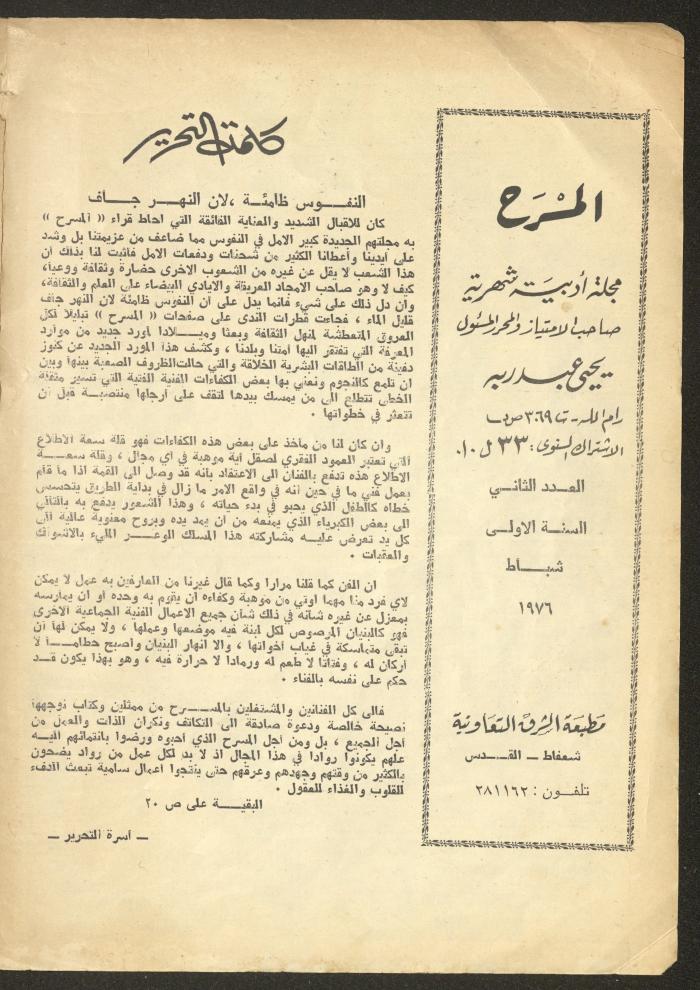 المسْرَح
مجلة أدبيَة شهرية
صاحب الامتياز والمحرر المسئول
يحيى عبد ربه
رام الله - ت ٣٦٩ ص.ب
الاشتراك السنوي: ٣٣ ل.١٠
العـدد الثاني
السـنة الاولى
شبـاط
١٩٧٦
مَطبعَة الشرق التعَاونيَة
شعفاط ــ القـدس
تلفـون : ٢٨١١٦٢
كلمة التحرير
النفـوس ظامئـة ،لان النهـر جـاف
كان للاقبال الشديد والعناية الفائقة التي احاط قراء « المسرح »
به مجلتهم الجديدة كبير الامل في النفوس مما ضاعف من عزيمتنا بل وشد
على أيدينا وأعطانا الكثير من شحنات ودفعات الامل فأثبت لنا بذلك أن
هذا الشعب لا يقل عن غيره من الشعوب الاخرى حضارة وثقافة ووعيا،
كيف لا وهو صاحب الامجاد العريقة والايادي البيضاء على العلم والثقافة،
وأن دل ذلك على شيء فانما يدل على أن النفوس ظامئة لان النهر جاف
قليل الماء ، فجاءت قطرات الندى على صفحات « المسرح » تبليلا لكل
العروق المتعطشة لمنهل الثقافة وبعثا وميـلادا لمورد جديد من موارد
المعرفة التي تفتقر اليها أمتنا وبلدنا ، وكشف هذا المورد الجديد عن كنوز
دفينة من الطاقات البشرية الخلاقة والتي حالت الظروف الصعبة بينها وبين
ان تلمع كالنجوم ونعني بها بعض الكفاءات الفنية الفتية التي تسير مثقلة
الخطى تتطلع الى من يمسك بيدها لتقف على أرجلها منتصبـة قبل ان
تتعثر في خطواتها ٠
وان كان لنا من مأخذ على بعض هذه الكفاءات فهو قلة سعة الاطلاع
التي تعتبر العمود الفقري لصقل أية موهبة في اي مجال ، وقلة سعـة
الاطلاع هذه تدفع بالفنان الى الاعتقاد بانه قد وصل الى القمة اذا ما قام
بعمل فني ما في حين أنه في واقع الامر ما زال في بداية الطريق يتحسس
خطاه كالطفل الذي يحبو في بدء حياته ، وهذا الشعور يدفع به بالتالي
الى بعض الكبرياء الذي يمنعه من ان يمد يده وبروح معنوية عالية الى
كل يد تعرض عليـه مشاركته هذا المسلك الوعـر المليء بالاشواك
والعقبات ٠
ان الفن كما قلنا مرارا وكما قال غيرنا من العارفين به عمل لا يمكن
لاي فرد منا مهما اوتي من موهبة وكفاءة ان يقوم به وحده أو ان يمارسه
بمعزل عن غيره شأنه في ذلك شأن جميع الاعمال الفنية الجماعية الاخرى
فهو كالبنيان المرصوص لكل لبنة فيه موضعها وعملها ، ولا يمكن لها أن
تبقى متماسكة في غياب أخواتها ، والا انهار البنيان وأصبح حطامـا لا
أركان له ، وفتاتا لا طعم له ورمادا لا حرارة فيه ، وهو بهذا يكون قـد
حكم على نفسه بالفناء ٠
فالى كل الفنانين والمشتغلين بالمسـرح من ممثلين وكتاب نوجهها
نصيحة خالصة ودعوة صادقة الى التكاتف ونكران الذات والعمل من
أجل الجميع ، بل ومن أجل المسرح الذي أحبوه ورضوا بانتمائهم اليـه
علهم يكونوا روادا في هذا المجال اذ لا بد لكل عمل من رواد يضحون
بالكثير من وقتهم وجهدهم وعرقهم حتى ينتجوا أعمال سامية تبعث الدفء
للقلوب والغذاء للعقول ٠
البقيـة على ص ٢٠
ــ أسرة التحرير ــ